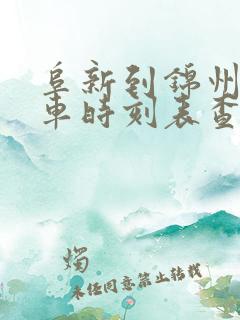 阜新到锦州
车时刻表查
烛
未经同意禁止转载